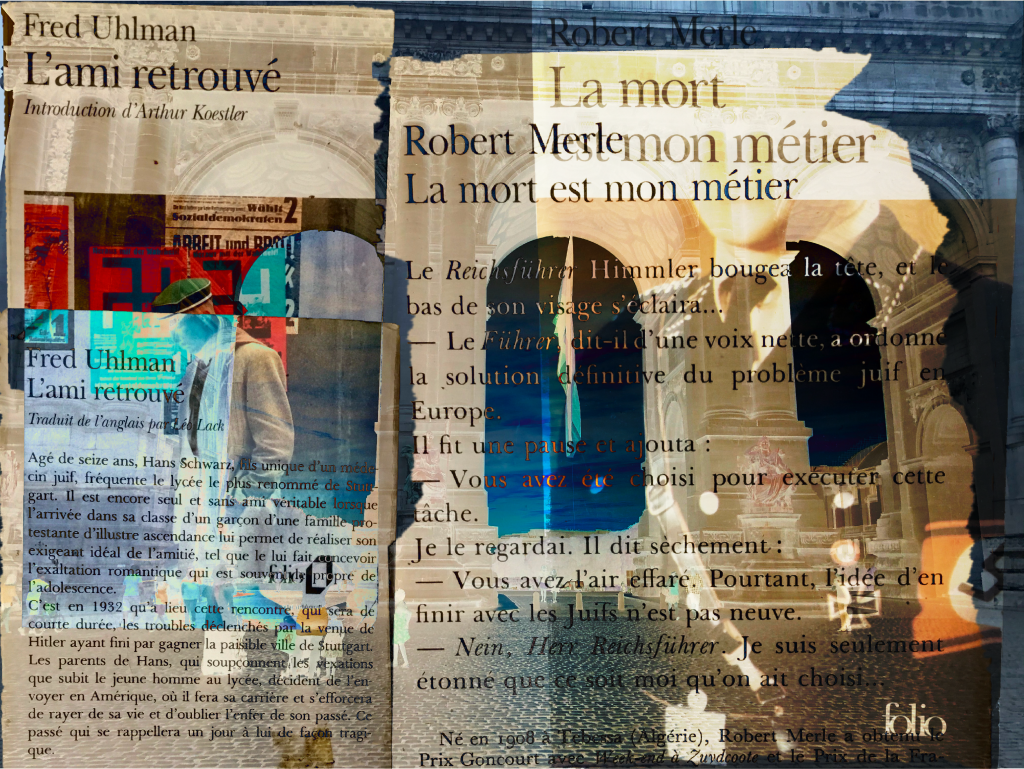 Fred Uhlman
L'ami retrouvé
Introduction d'Arthur Koestler
Wählt
Sozialdemokraten 2
ARBEIT und
Fred Uhlman
L'ami retrouvé
Traduit de l'anglais par Léo Lack
Agé de seize ans, Hans Schwarz, fils unique d'un méde-
cin juif, fréquente le lycée le plus renommé de Stutt-
gart. Il est encore seul et sans ami véritable lorsque
l'arrivée dans sa classe d'un garçon d'une famille pro-
testante d'illustre ascendance lui permet de réaliser son
exigeant idéal de l'amitié, tel que le lui fait concevoir
l'exaltation romantique qui est souvent le propre de
l'adolescence.
C'est en 1932 qu'a lieu cette rencontre, qui sera de
courte durée, les troubles déclenchés par la venue de
Hitler ayant fini par gagner la paisible ville de Stuttgart.
Les parents de Hans, qui soupçonnent les vexations
que subit le jeune homme au lycée, décident de l'en-
voyer en Amérique, où il fera sa carrière et s'efforcera
de rayer de sa vie et d'oublier l'enfer de son passé. Ce
passé qui se rappellera un jour à lui de façon tragi-
que.
folio
Robert Merle
La mort
est mon métier
Robert Merle
La mort est mon métier
Le Reichsführer Himmler bougea la tête, et le
bas de son visage s'éclaira...
— Le Führer, dit-il d'une voix nette, a ordonné
la solution définitive du problème juif en
Europe.
Il fit une pause et ajouta :
— Vous avez été choisi pour exécuter cette
tâche.
Je le regardai. Il dit sèchement :
— Vous avez l'air effaré. Pourtant, l'idée d'en
finir avec les Juifs n'est pas neuve.
— Nein, Herr Reichsführer. Je suis seulement
étonné que ce soit moi qu'on ait choisi...
folio
Né en 1908 à Tébessa (Algérie), Robert Merle a obtenu le
Prix Goncourt avec Week-end à Zuydcoote et le Prix de la Fra-